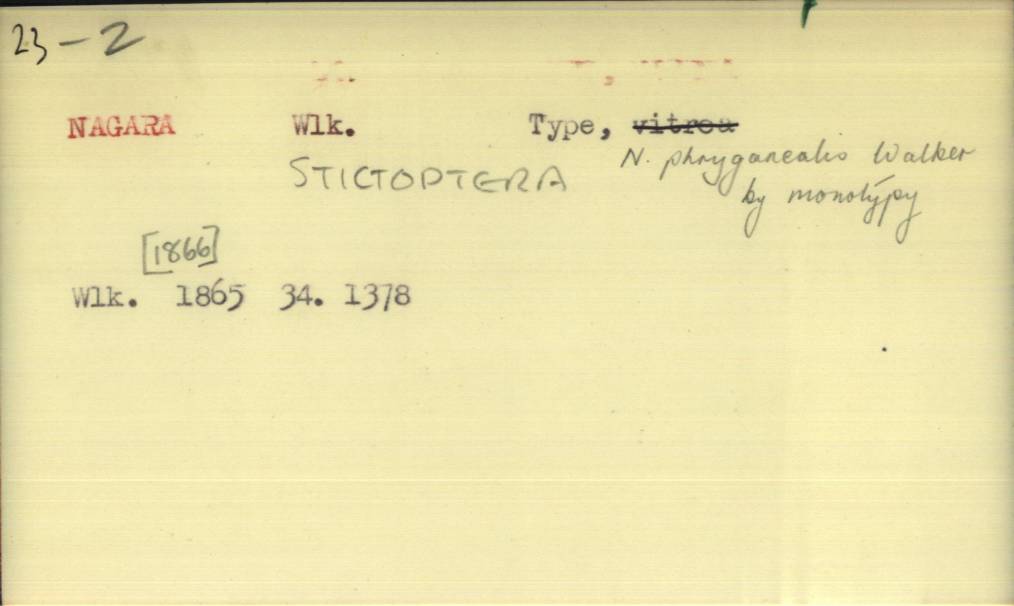 23-2
NAGARA Wlk. Type, vitrea
STICTOPTERA N. phryganealis Walker
by monotypy
[1866]
Wlk. 1865 34. 1378